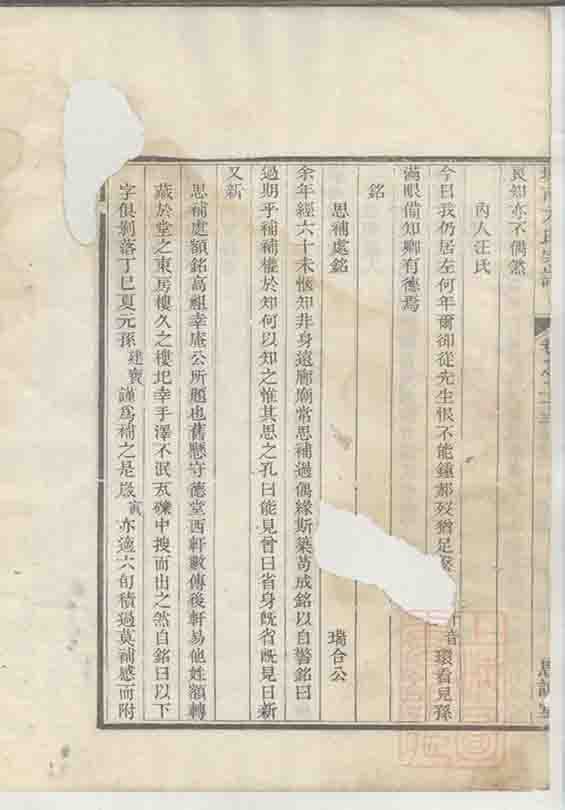 良知亦不偶然
內人汪氏
今日我仍居左何年爾卻從先生恨不能鍾郝歿猶足
環看見孫
滿眼備知卿有德焉
銘
思補處銘
瑞合公
余年經六十未愜知非身遠廊廟常思補過偶緣斯築茍成銘以自警銘曰
過期乎補補權於知何以知之惟其思之孔曰能見曾曰省身既省既見日新
又新
思補處額銘高祖幸庵公所題也舊懸守德堂西軒數傳後軒易他姓額轉
藏於堂之東房樓久之樓圮幸手澤不泯瓦礫中搜而出之然自銘曰以下
字俱剝落丁巳夏元孫建寅謹為補之是歲寅亦適六旬積過莫補感而附